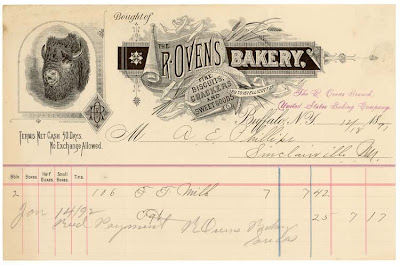 Bought of
THE
R. OVENS BAKERY.
FINE
BISCUITS,
CRACKERS
AND
SWEET GOODS
The R. Ovens Branch
United States Baking Company.
Buffalo, N.Y. 12/18 1891
TERMS NET CASH 30 DAYS.
No Exchange Allowed.
M A E Phillips
Sinclairville, N.Y.
Bbls. Boxes. Half Boxes. Small Boxes. Tins.
2 106 7 7 42
25 7 17
Jan 14/92
Recd Payment R Ovens Bakery